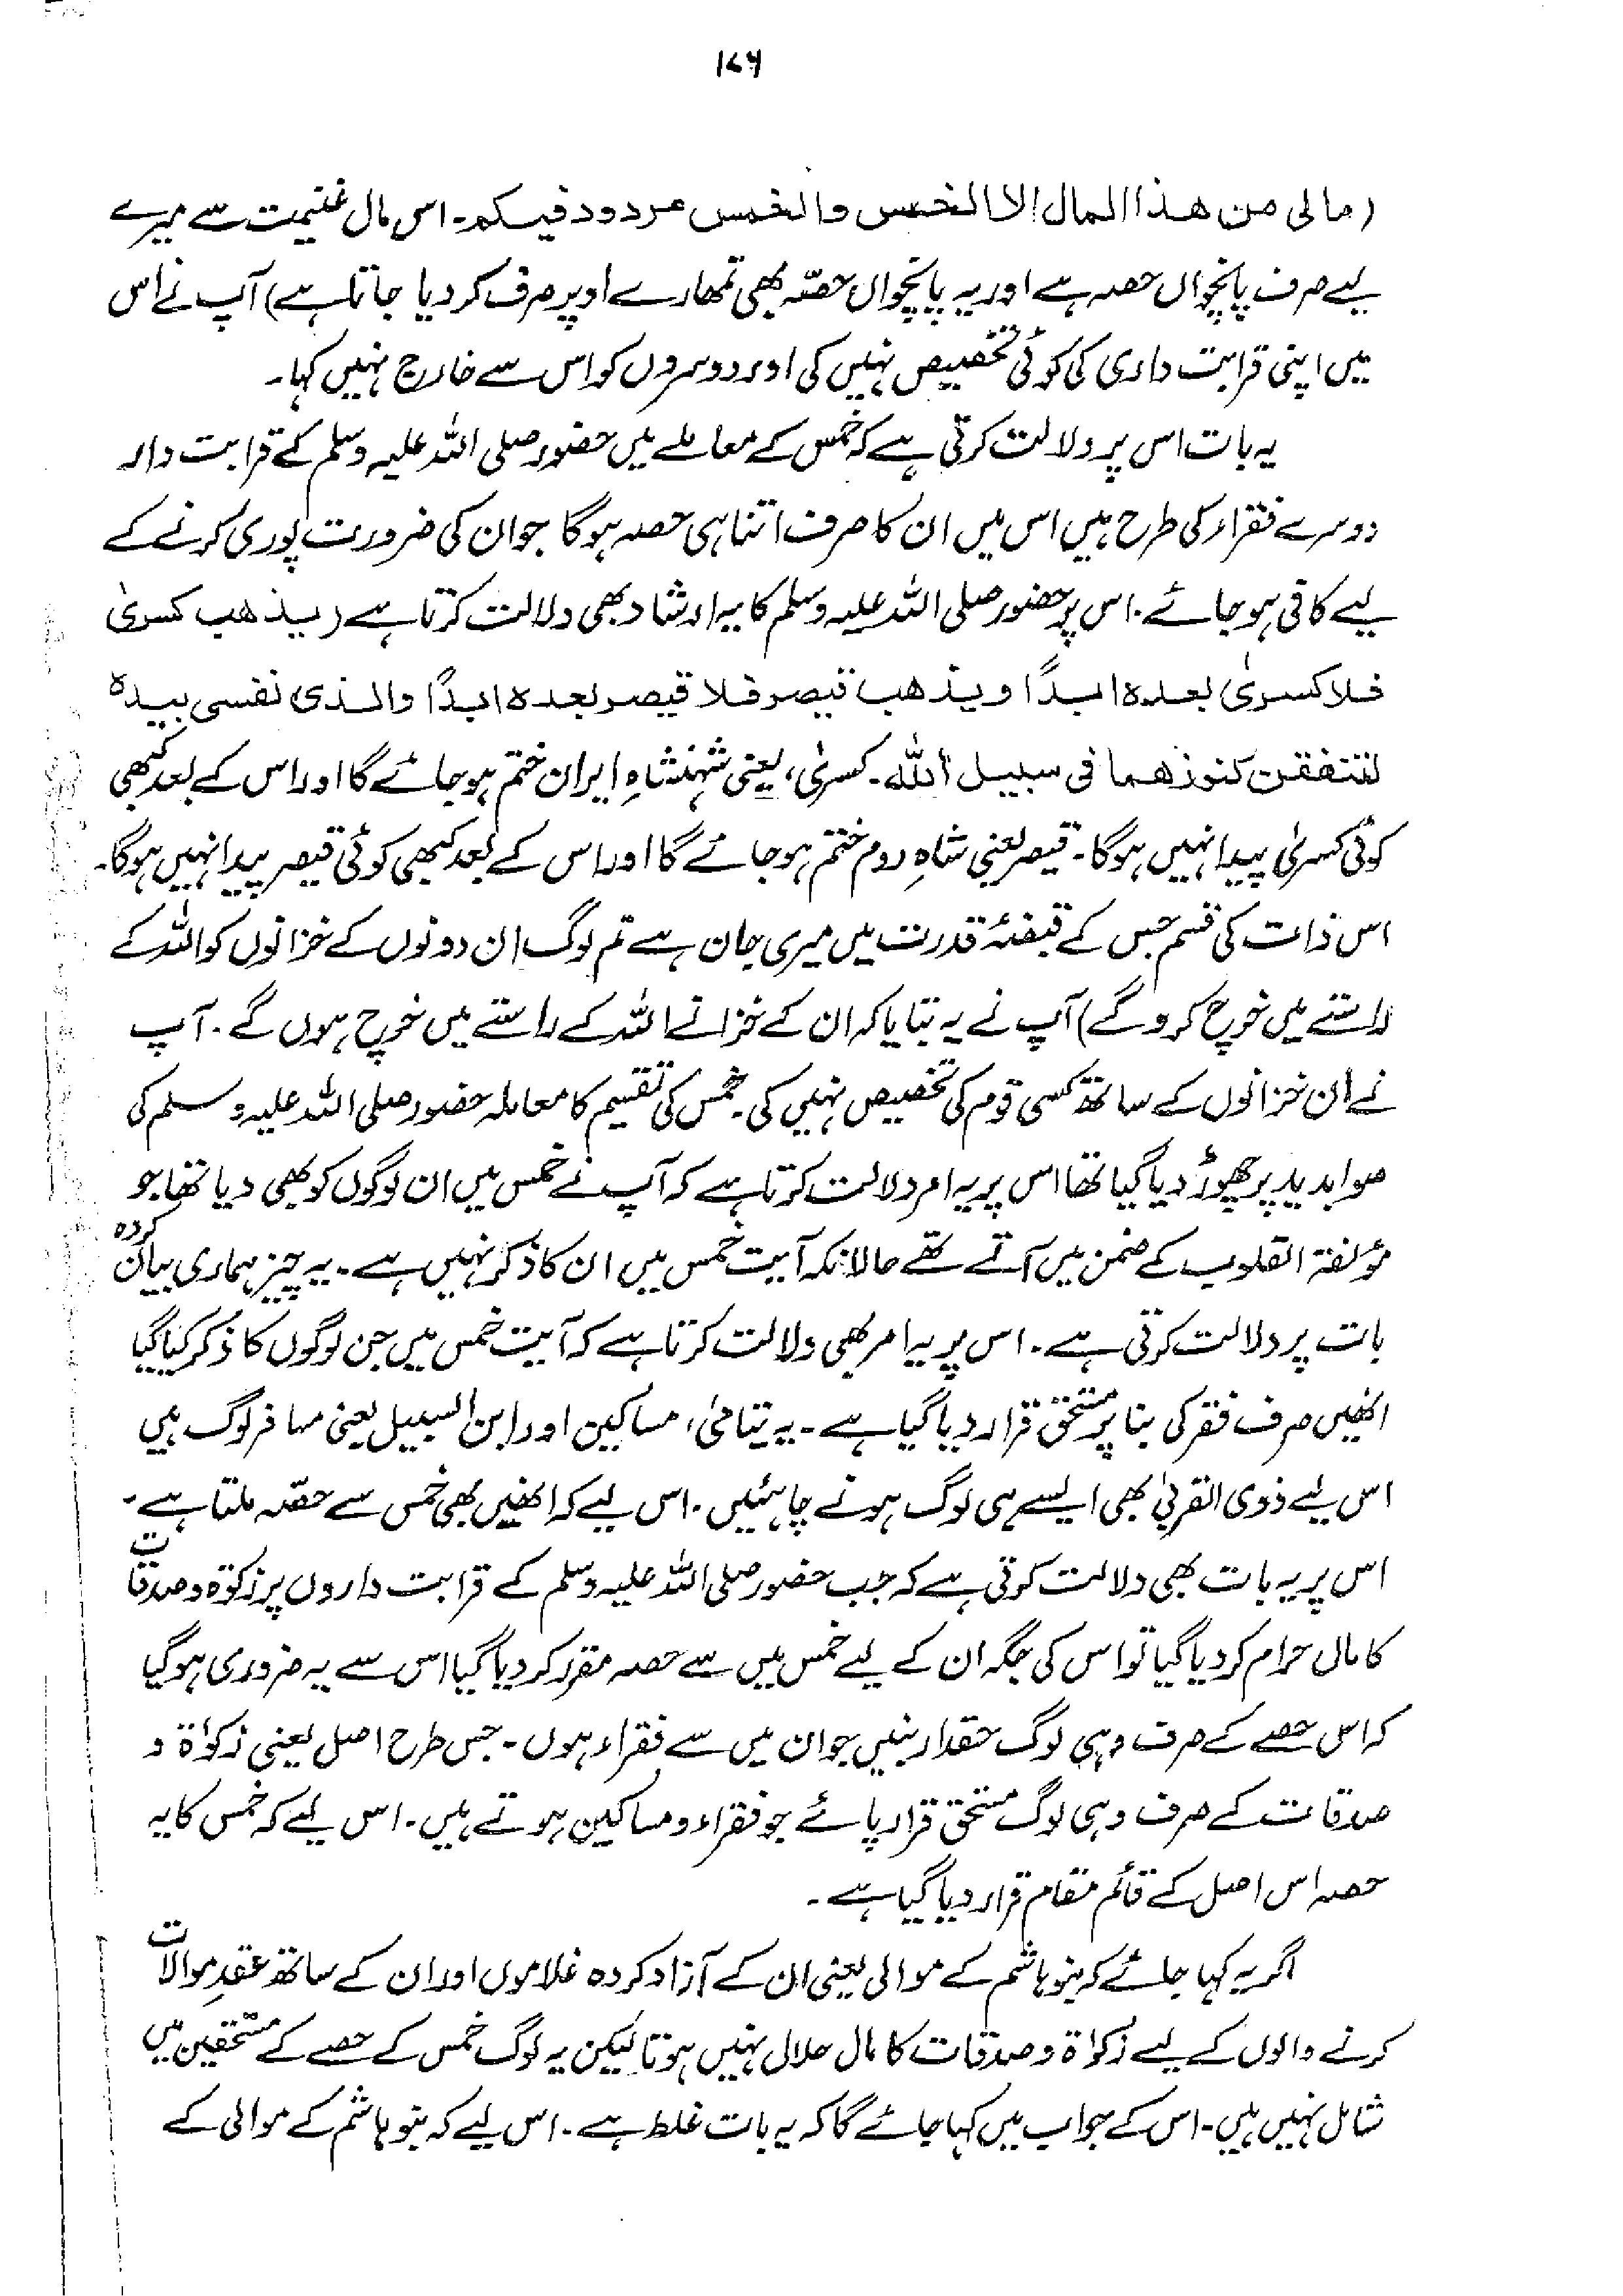 ۱۷۶
(مالی من هذا المال الا الخمس والخمس مردود فیکم۔ اس مال غنیمت سے میرے
لیے صرف پانچواں حصہ ہے اور یہ پانچواں حصّہ بھی تمھارے اوپر صرف کر دیا جاتا ہے) آپ نے اس
میں اپنی قرابت داری کی کوئی تخصیص نہیں کی اور دوسروں کو اس سے خارج نہیں کہا۔
یہ بات اس پر دلالت کرتی ہے کہ خمس کے معاملے میں حضور صلی اللہ علیہ وسلم کے قرابت دار
دوسرے فقراء کی طرح ہیں اس میں ان کا صرف اتنا ہی حصہ ہوگا جو ان کی ضرورت پوری کرنے کے
لیے کافی ہو جائے۔ اس پر حضور صلی اللہ علیہ وسلم کا یہ ارشاد بھی دلالت کرتا ہے (یذهب کسریٰ
فلا کسریٰ بعده ابدًا ویذهب قیصر فلا قیصر بعده ابدًا والذی نفسی بیده
لتنفقن کنوزهما فی سبیل الله۔ کسریٰ، یعنی شہنشاہِ ایران ختم ہو جائے گا اور اس کے بعد کبھی
کوئی کسریٰ پیدا نہیں ہوگا۔ قیصر یعنی شاہِ روم ختم ہو جائے گا اور اس کے بعد کبھی کوئی قیصر پیدا نہیں ہوگا۔
اس ذات کی قسم جس کے قبضۂ قدرت میں میری جان ہے تم لوگ ان دونوں کے خزانوں کو اللہ کے
راستے میں خرچ کرو گے) آپ نے یہ بتایا کہ ان کے خزانے اللہ کے راستے میں خرچ ہوں گے۔ آپ
نے ان خزانوں کے ساتھ کسی قوم کی تخصیص نہیں کی۔ خمس کی تقسیم کا معاملہ حضور صلی اللہ علیہ وسلم کی
صوابدید پر چھوڑ دیا گیا تھا اس پر یہ امر دلالت کرتا ہے کہ آپ نے خمس میں ان لوگوں کو بھی دیا تھا جو
مؤلفۃ القلوب کے ضمن میں آتے تھے حالانکہ آیت خمس میں ان کا ذکر نہیں ہے۔ یہ چیز ہماری بیان کردہ
بات پر دلالت کرتی ہے۔ اس پر یہ امر بھی دلالت کرتا ہے کہ آیت خمس میں جن لوگوں کا ذکر کیا گیا
انھیں صرف فقر کی بنا پر مستحق قرار دیا گیا ہے۔ یہ یتامیٰ، مساکین اور ابن السبیل یعنی مسافر لوگ ہیں
اس لیے ذوی القربیٰ بھی ایسے ہی لوگ ہونے چاہئیں۔ اس لیے کہ انھیں بھی خمس سے حصّہ ملتا ہے۔
اس پر یہ بات بھی دلالت کرتی ہے کہ جب حضور صلی اللہ علیہ وسلم کے قرابت داروں پر زکوٰۃ و صدقات
کا مال حرام کر دیا گیا تو اس کی جگہ ان کے لیے خمس میں سے حصہ مقرر کر دیا گیا اس سے یہ ضروری ہو گیا
کہ اس حصے کے صرف وہی لوگ حقدار بنیں جو ان میں سے فقراء ہوں۔ جس طرح اصل یعنی زکوٰۃ و
صدقات کے صرف وہی لوگ مستحق قرار پائے جو فقراء و مساکین ہوتے ہیں۔ اس لیے کہ خمس کا یہ
حصہ اس اصل کے قائم مقام قرار دیا گیا ہے۔
اگر یہ کہا جائے کہ بنو ہاشم کے موالی یعنی ان کے آزاد کردہ غلاموں اور ان کے ساتھ عقدِ موالات
کرنے والوں کے لیے زکوٰۃ و صدقات کا مال حلال نہیں ہوتا لیکن یہ لوگ خمس کے حصے کے مستحقین میں
شامل نہیں ہیں۔ اس کے جواب میں کہا جائے گا کہ یہ بات غلط ہے۔ اس لیے کہ بنو ہاشم کے موالی کے